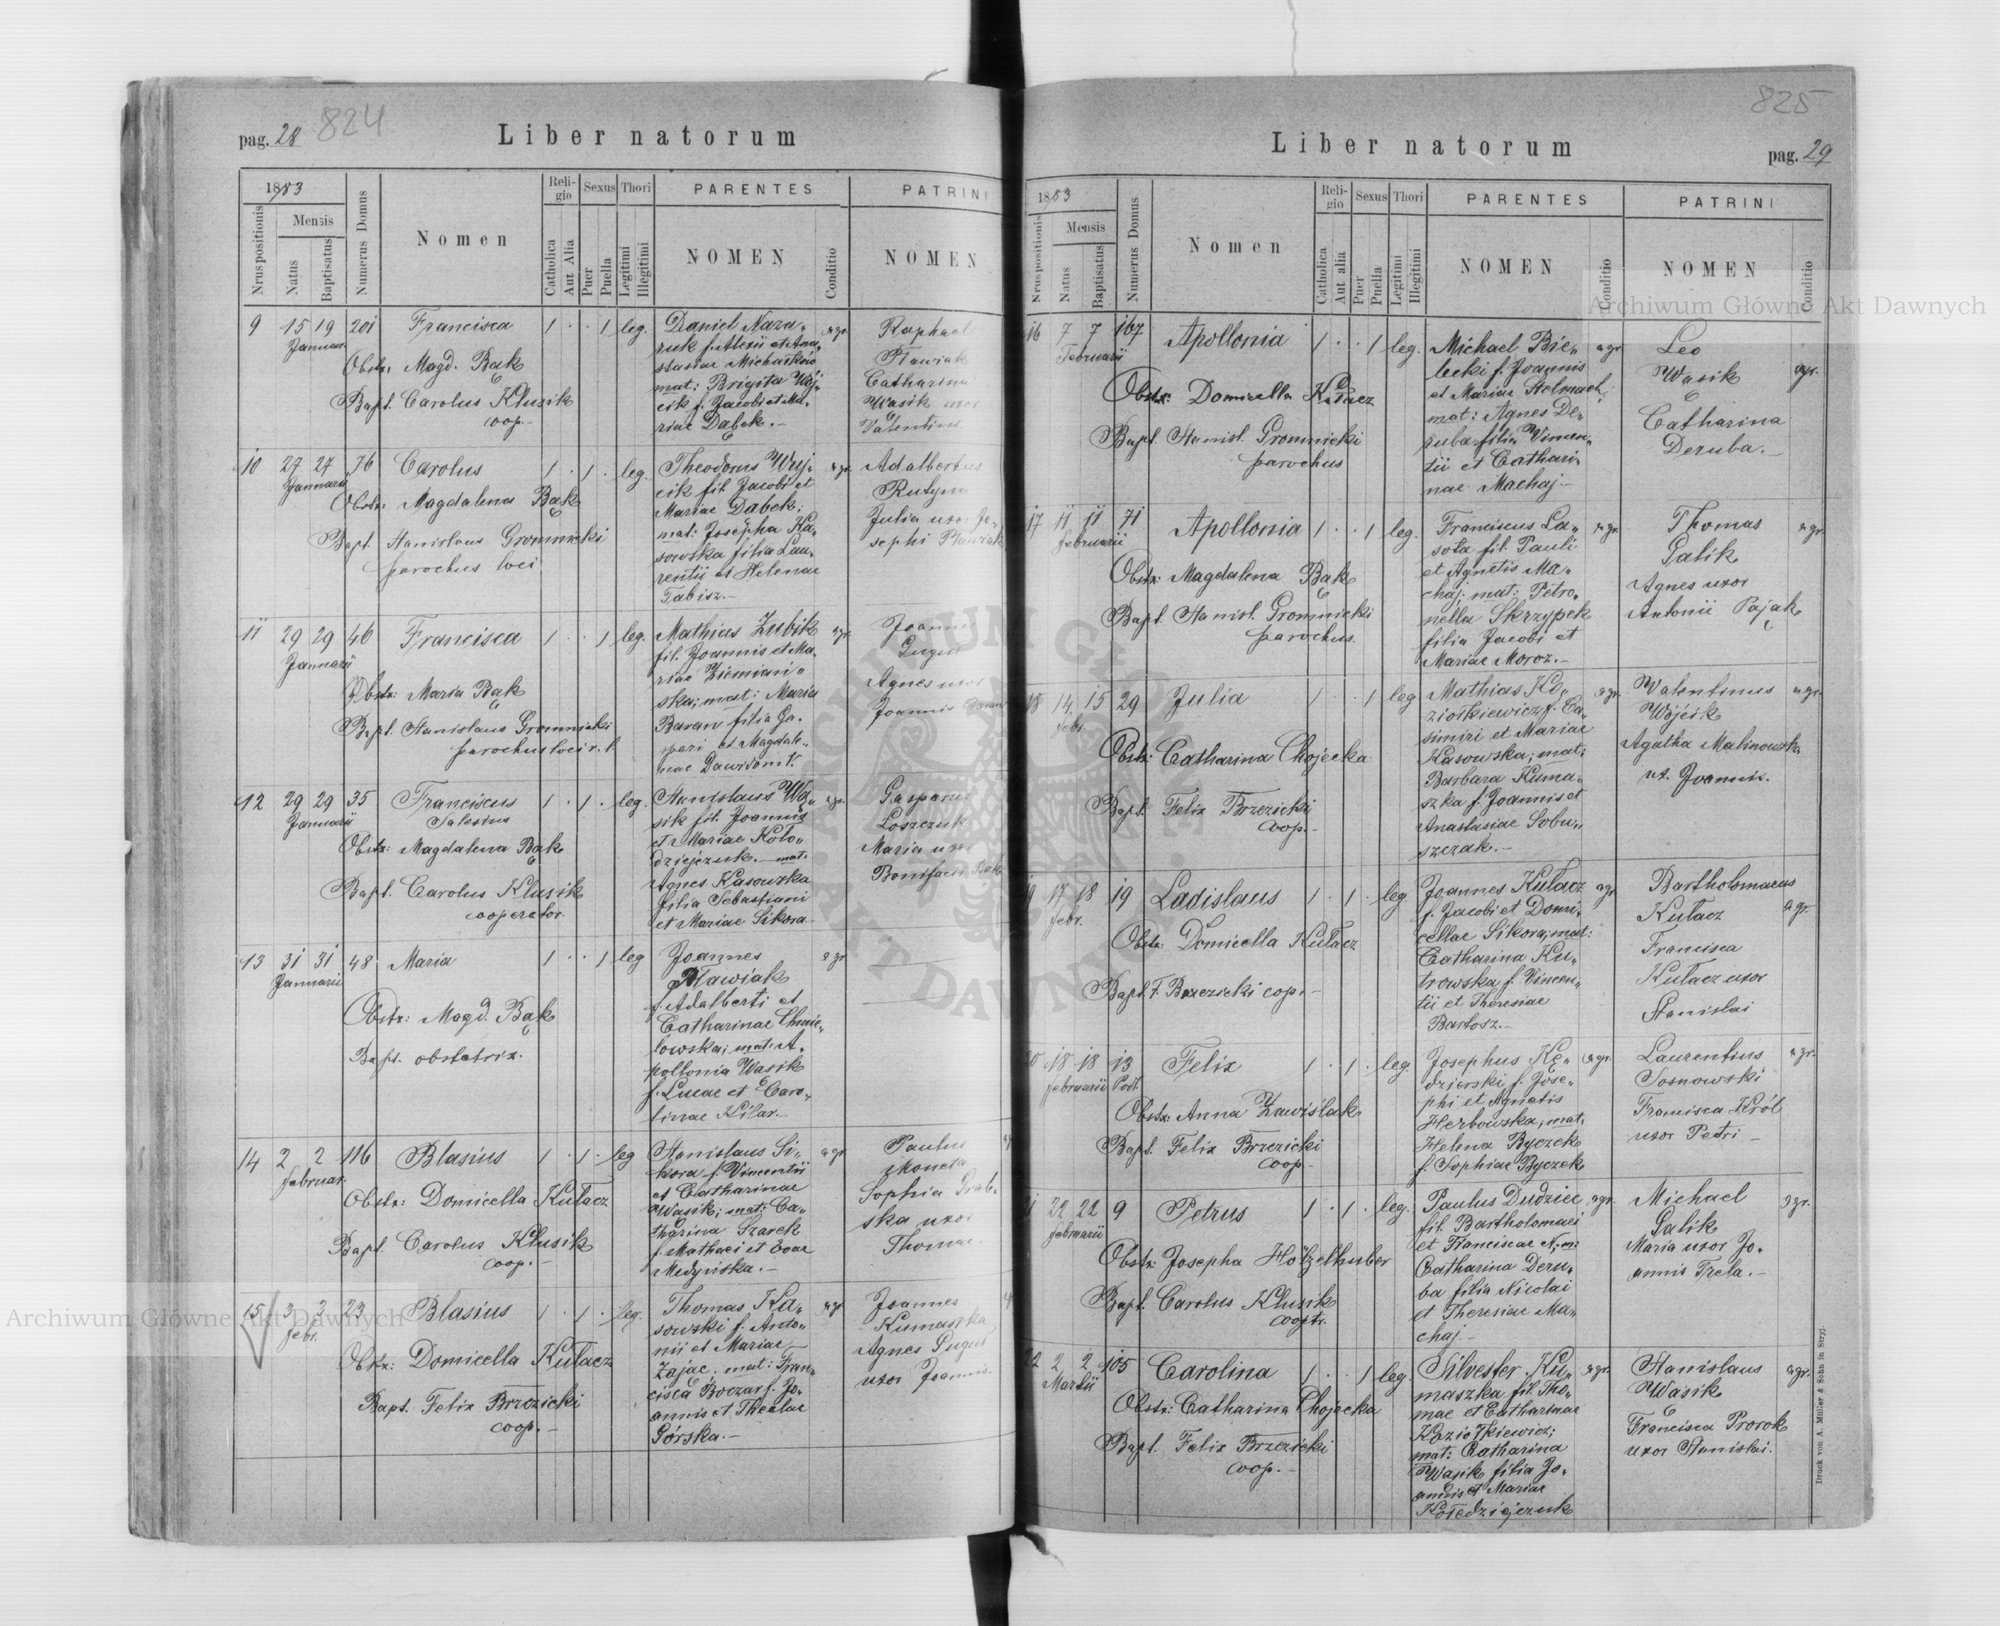 824
pag. 28
Liber natorum
1883
Nrus positionis
Mensis
Natus
Baptisatus
Numerus Domus
Nomen
Religio
Catholica
Aut Alia
Sexus
Puer
Puella
Thori
Legitimi
Illegitimi
PARENTES
NOMEN
Conditio
PATRINI
NOMEN
9 15 19 201 Francisca 1 . . 1 leg.
Januar.
Obstr: Magd. Bąk
Bapt. Carolus Klusik
coop.-
Daniel Naza-
ruk f. Alexii et Ana-
stasiae
mat: Brigita Wój-
cik f. Jacobi et Ma-
riae Dąbek.-
agr.
Raphael
Pławiak
Catharina
Wąsik uxor
Valentini
10 27 27 76 Carolus 1 . 1 . leg.
Januarii
Obstr: Magdalena Bąk
Bapt. Stanislaus Gromnicki
parochus loci
Theodorus Wuj-
cik fil. Jacobi et
Mariae Dąbek;
mat: Josepha Ka-
sowska filia Lau-
rentii et Helenae
Tabisz.-
agr.
Adalbertus
Rutyna
Julia uxor Jo-
sephi Pławiak
11 29 29 46 Francisca 1 . . 1 leg.
Januarii
Obstr: Maria Bąk
Bapt. Stanislaus Gromnicki
parochus loci r. l.
Mathias Zubik
fil. Joannis et Ma-
riae Ziemiań-
ska; mat: Maria
Baran filia Ga-
spari et Magdale-
nae
agr.
Joannes
Agnes uxor
Joannis
12 29 29 35 Franciscus 1 . 1 . leg.
Januarii Salesius
Obstr: Magdalena Bąk
Bapt. Carolus Klusik
cooperator.
Stanislaus Wą-
sik fil. Joannis
et Mariae Koło-
dziejczuk.- mat.
Agnes Kasowska
filia Sebastiani
et Mariae Sikora.-
agr.
Gasparus
Loszczuk
Maria uxor
Bonifacii Bąk
13 31 31 48 Maria 1 . . 1 leg
Januarii
Obstr: Magd. Bąk
Bapt. obstetrix.
Joannes
Pławiak
f. Adalberti et
Catharinae Chmie-
lowska; mat: A-
pollonia Wąsik
f. Lucae et Caro-
linae Kilar.-
agr
14 2 2 116 Blasius 1 . 1 . leg
februar.
Obstr: Domicella Kułacz
Bapt. Carolus Klusik
coop.-
Stanislaus Si-
kora f. Vincentii
et Catharinae
Wąsik; mat: Ca-
tharina Szarek
f. Mathaei et Evae
Medyńska.-
agr
Paulus
Moneta
Sophia Grab-
ska uxor
Thomae
15 3 3 23 Blasius 1 . 1 . leg.
febr.
Obstr: Domicella Kułacz
Bapt. Felix Brzezicki
coop.-
Thomas Ka-
sowski f. Anto-
nii et Mariae
Zając. mat: Fran-
cisca Boczar f. Jo-
annis et Theclae
Górska.-
agr
Joannes
Kumaszka
Agnes
uxor Joannis
825
Liber natorum
pag. 29
1883
Nrus positionis
Mensis
Natus
Baptisatus
Numerus Domus
Nomen
Religio
Catholica
Aut alia
Sexus
Puer
Puella
Thori
Legitimi
Illegitimi
PARENTES
NOMEN
Conditio
PATRINI
NOMEN
Conditio
16 7 7 167 Apollonia 1 . . 1 leg.
Februarii
Obstr: Domicella Kułacz
Bapt. Stanisl. Gromnicki
parochus
Michael Bie-
lecki f. Joannis
et Mariae Stelmach;
mat: Agnes De-
ruba filia Vincen-
tii et Cathari-
nae Machaj.-
agr
Leo
Wąsik agr.
Catharina
Deruba.-
17 11 11 71 Apollonia 1 . . 1 leg.
februarii
Obstr: Magdalena Bąk
Bapt. Stanisl. Gromnicki
parochus.
Franciscus La-
sota fil. Pauli
et Agnetis Ma-
chaj; mat: Petro-
nella Skrzypek
filia Jacobi et
Mariae Moroz.-
agr.
Thomas agr.
Galik
Agnes uxor
Antonii Pająk
18 14 15 29 Julia 1 . . 1 leg
febr.
Obstr: Catharina Chojecka
Bapt. Felix Brzezicki
coop.-
Mathias Ko-
ziołkiewicz f. Ca-
simiri et Mariae
Kasowska; mat:
Barbara Kuma-
szka f. Joannis et
Anastasiae Sobu-
szczak.-
agr.
Valentinus agr.
Wójcik
Agatha Malinowska
ux. Joannis.
19 17 18 19 Ladislaus 1 . 1 . leg
febr.
Obstr: Domicella Kułacz
Bapt. F. Brzezicki coop.-
Joannes Kułacz
f. Jacobi et Domi-
cellae Sikora; mat:
Catharina Ku-
trowska f. Vincen-
tii et Theresiae
Bartosz.-
agr.
Bartholomaeus
Kułacz agr.
Francisca
Kułacz uxor
Stanislai
20 18 18 13 Felix 1 . 1 . leg.
februarii Podl.
Obstr: Anna Zawiślak
Bapt. Felix Brzezicki
coop.-
Josephus Kę-
dzierski f. Jose-
phi et Agnetis
Herbowska, mat.
Helena Byczek
f. Sophiae Byczek
agr.
Laurentius agr.
Sosnowski
Francisca Król
uxor Petri -
21 22 22 9 Petrus 1 . 1 . leg.
februarii
Obstr: Josepha Hölzelhuber
Bapt. Carolus Klusik
cooptr.
Paulus Dudziec
fil. Bartholomaei
et Franciscae N.; m:
Catharina Deru-
ba filia Nicolai
et Theresiae Ma-
chaj.-
agr.
Michael agr.
Galik
Maria uxor Jo-
annis Trela.-
22 2 2 105 Carolina 1 . . 1 leg.
Martii
Obstr: Catharina Chojecka
Bapt. Felix Brzezicki
coop.-
Silvester Ku-
maszka fil. Tho-
mae et Catharinae
Koziołkiewicz;
mat: Catharina
Wąsik filia Jo-
annis et Mariae
Kołodziejczuk
agr.
Stanislaus agr.
Wąsik
Francisca Prorok
uxor Stanislai.
Druck von A. Müller & Sohn in Stryj.
Archiwum Główne Akt Dawnych
Archiwum Główne Akt Dawnych
ARCHIWUM GŁÓWNE AKT DAWNYCH